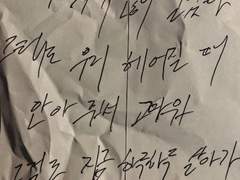 그래도 우리 헤어질 때
안아 줘서 고마워
지금 하루하루 살아가